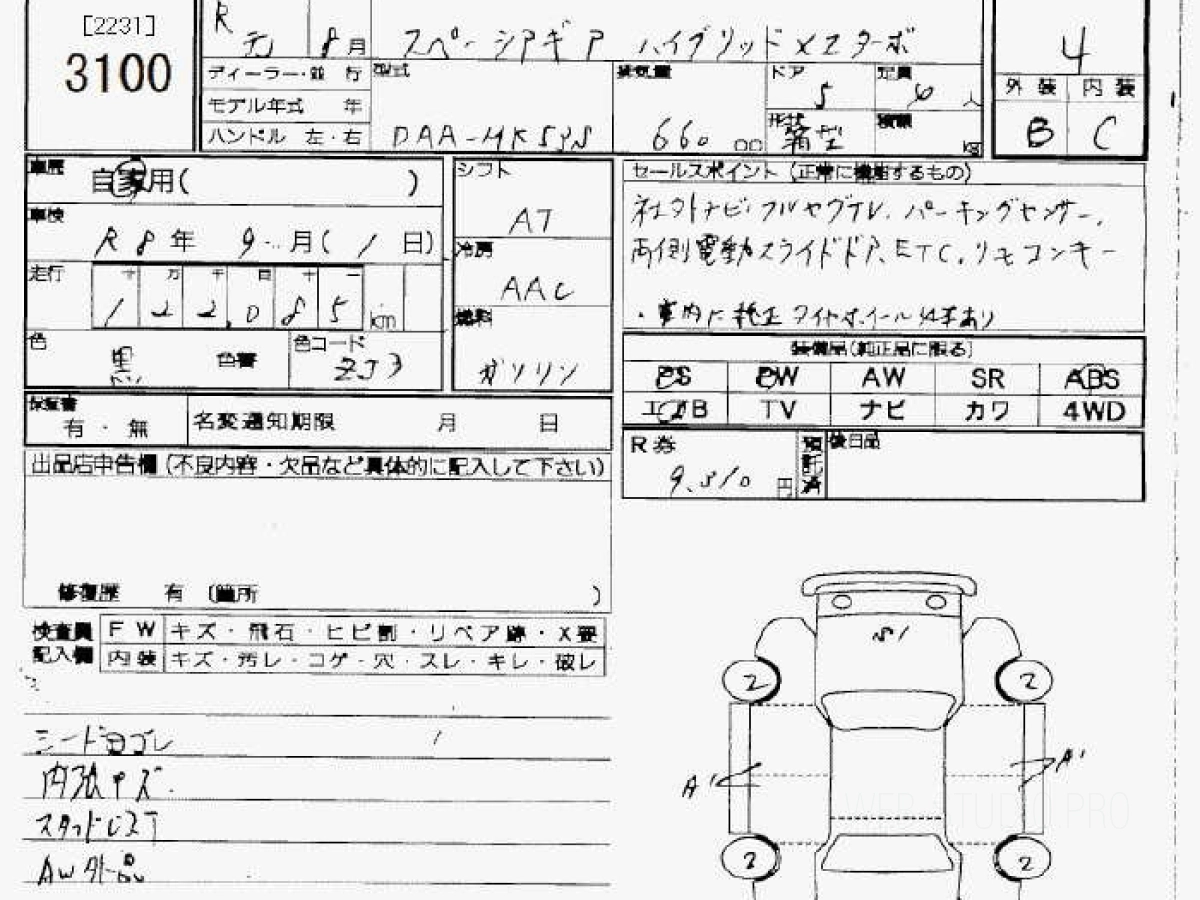 [2231]
3100
R元 8月
スペーシアギア ハイブリッドXZターボ
4
ディーラー・並行
モデル年式 年
ハンドル 左・右
型式
DAA-MK53S
排気量
660 cc
ドア
5
定員
4人
形状
箱型
積載
kg
外装 内装
B C
車歴
自家用( )
車検
R8年 9月(1日)
走行
十 万 千 百 十 一
122,085 km
色
黒
色番
色コード
ZJ3
シフト
AT
冷房
AAC
燃料
ガソリン
セールスポイント (正常に機能するもの)
社外ナビ・フルセグTV. パーキングセンサー,
両側電動スライドドア, ETC, リモコンキー
・車内に純正タイヤホイール4本あり
装備品(純正品に限る)
PS PW AW SR ABS
エアB TV ナビ カワ 4WD
保証書
有・無
名変通知期限 月 日
R券
9,310円
預託済
後日品
出品店申告欄 (不良内容・欠品など具体的に記入して下さい)
修復歴 有 (箇所 )
検査員記入欄
FW キズ・飛石・ヒビ割・リペア跡・X要
内装 キズ・汚レ・コゲ・穴・スレ・キレ・破レ
シートヨゴレ
内張キズ
スタッドレス
AW外品
S1
2 2
A' A'
2 2
WEB STUDIO PRO